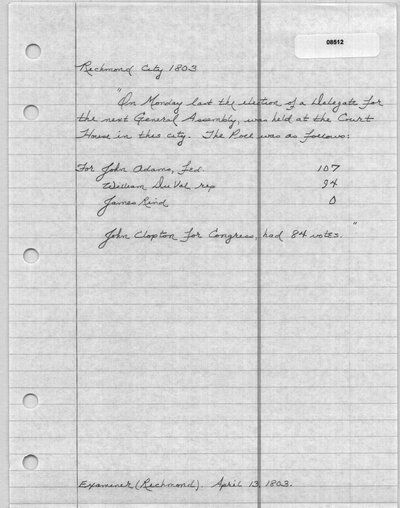 08512
Richmond City 1803
"On Monday last the election of a Delegate for
the next General Assembly, was held at the Court
House in this city. The Poll was as follows:
For John Adams, Fed. 107
William DuVal rep 94
James Rind 0
John Clopton for Congress, had 84 votes."
Examiner (Richmond). April 13, 1803.